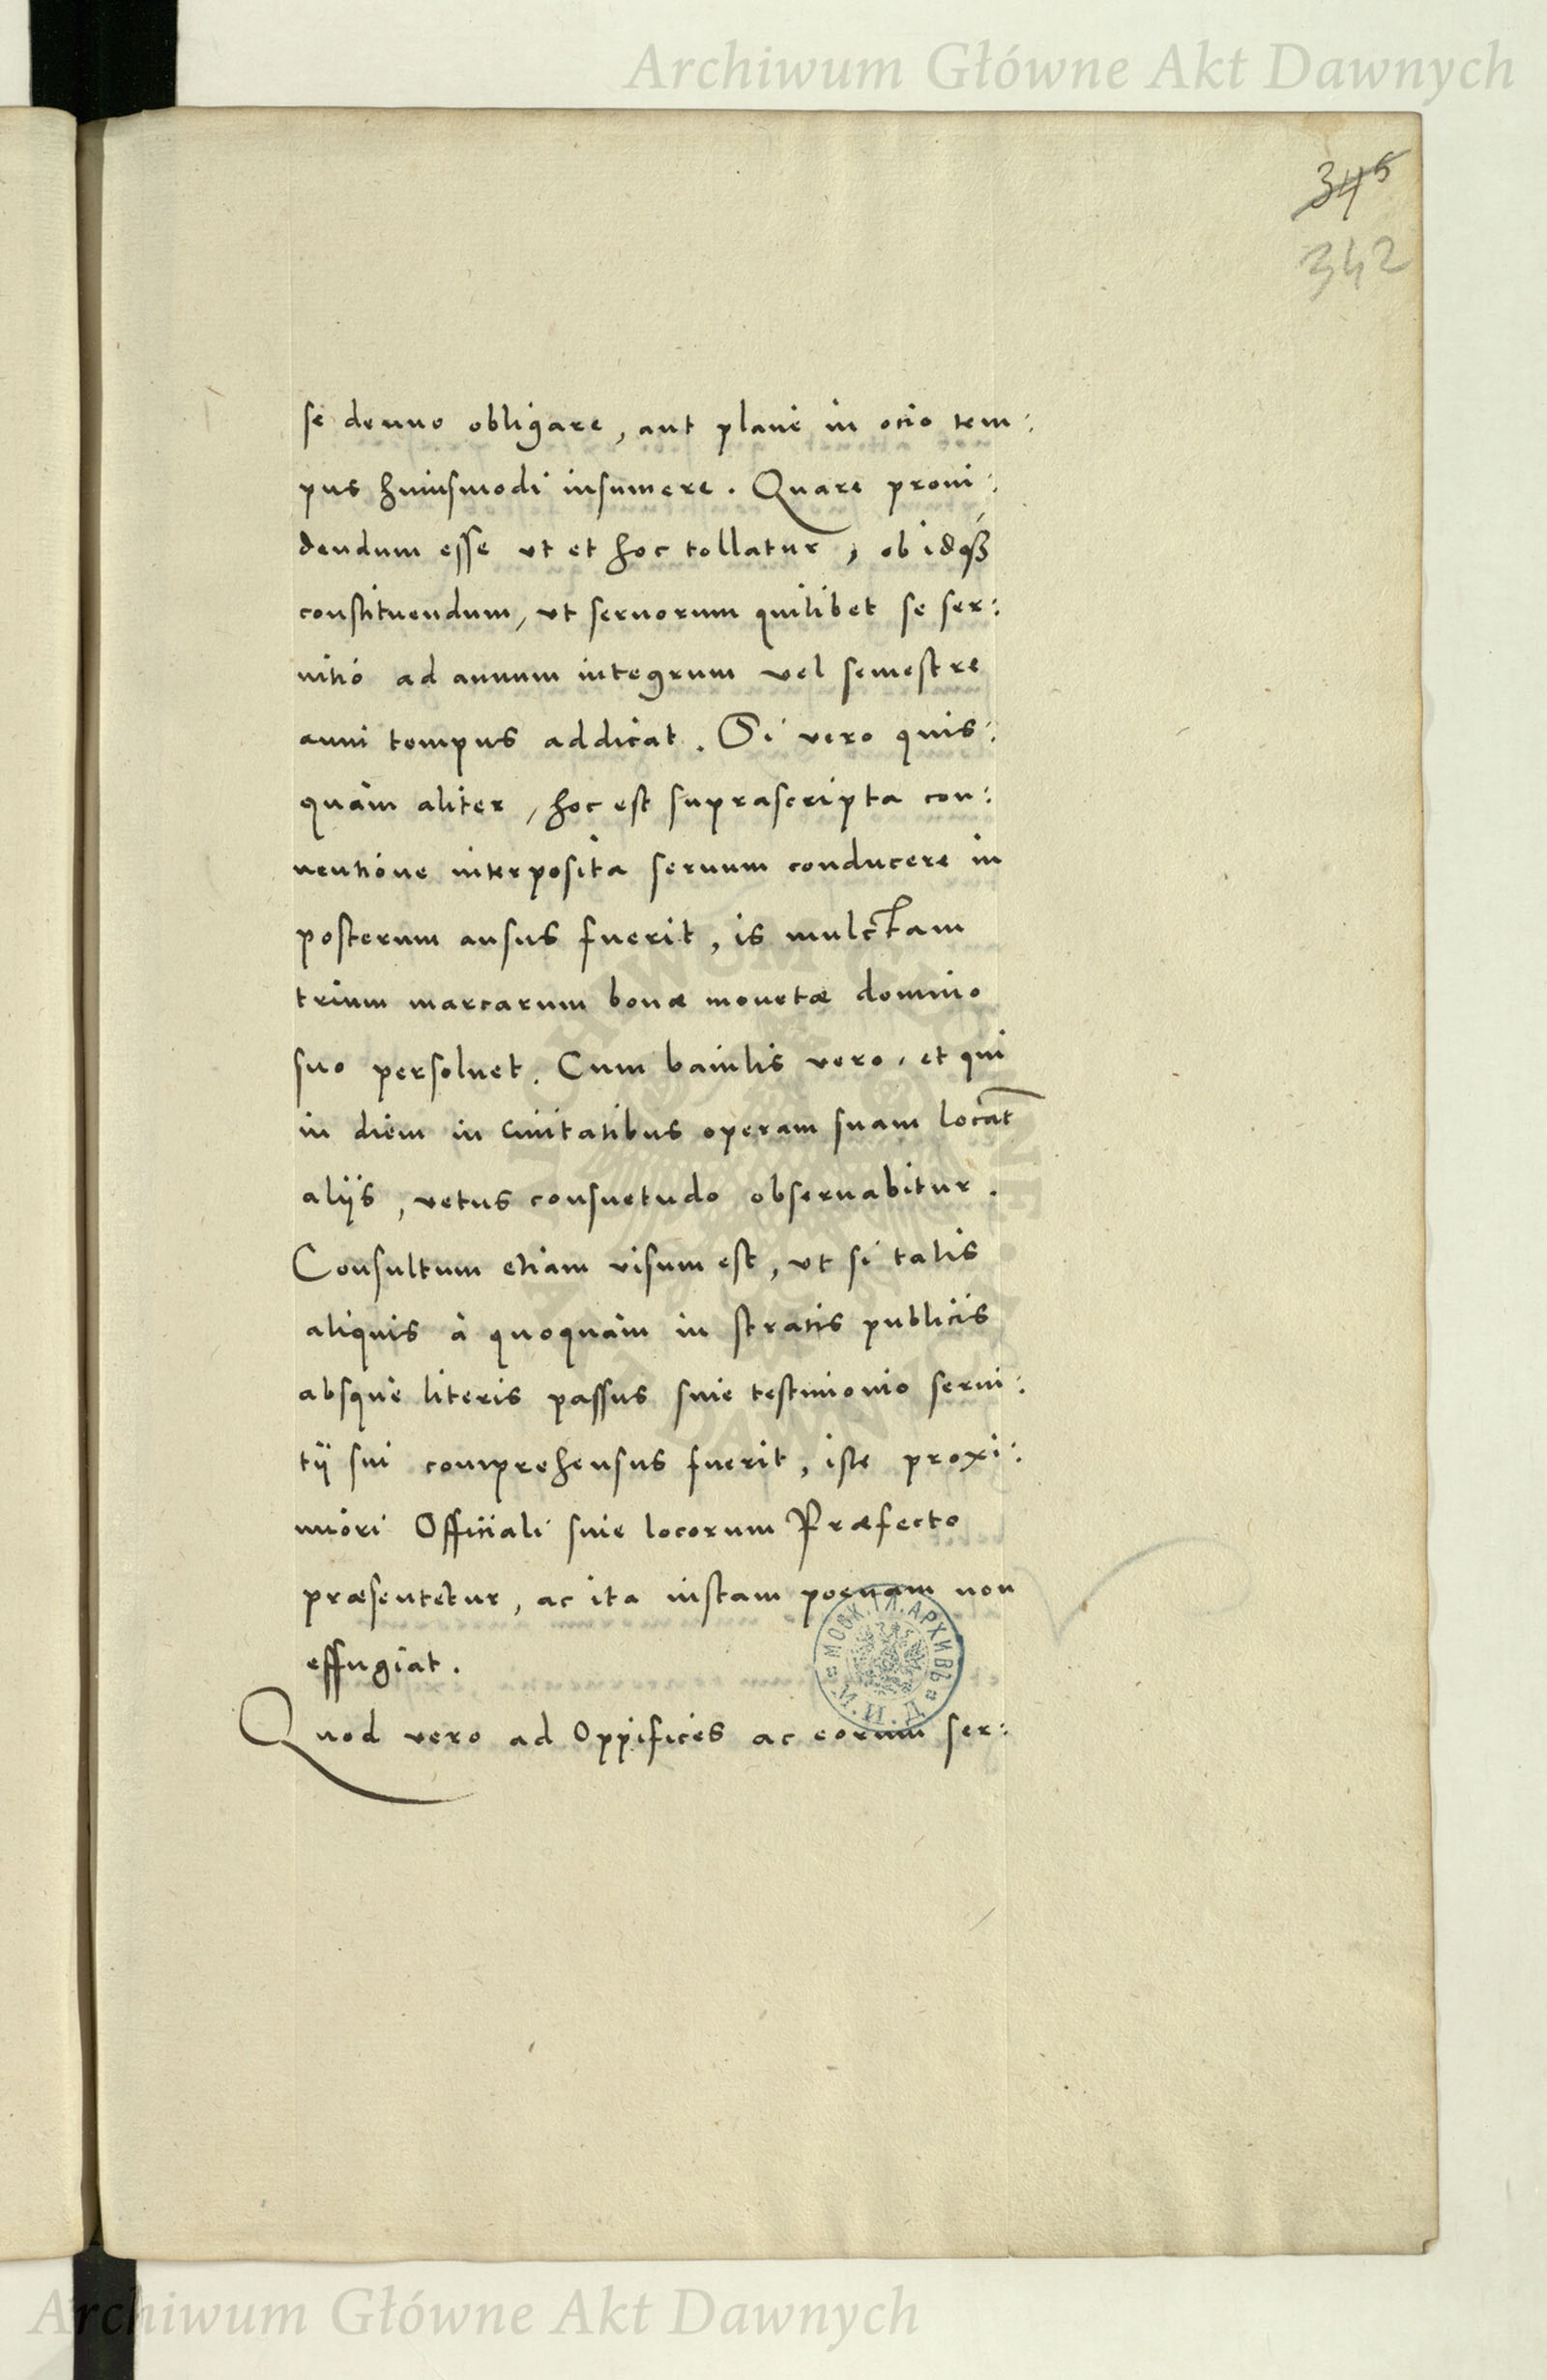 Archiwum Główne Akt Dawnych
345
342
se denuo obligare, aut plane in ocio tem:
pus huiusmodi insumere. Quare proui:
dendum esse vt et hoc tollatur, ob idqꝫ
constituendum, vt seruorum quilibet se ser:
uitio ad annum integrum vel semestre
anni tempus addicat. Si vero quis:
quàm aliter, hoc est suprascripta con:
uentione interposita seruum conducere in
posterum ausus fuerit, is mulctam
trium marcarum bonæ monetæ domino
suo persoluet. Cum baiulis vero, et qui
in diem in Ciuitatibus operam suam locāt
aliis, vetus consuetudo obseruabitur.
Consultum etiam visum est, vt si talis
aliquis à quoquàm in stratis publicis
absque literis passus siue testimonio serui:
tij sui comprehensus fuerit, iste proxi:
miori Officiali siue locorum Præfecto
præsentetur, ac ita iustam poenam non
effugiat.
Quod vero ad Oppifices ac eorum ser:
МОСК. ГЛ. АРХИВЪ
М. И. Д.
ARCHIWUM GŁÓWNE AKT DAWNYCH
Archiwum Główne Akt Dawnych